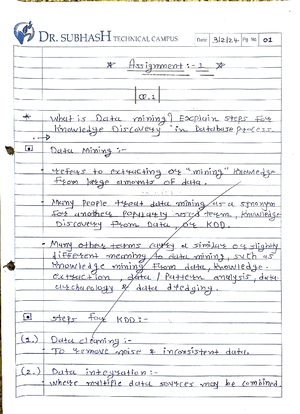 DR. SUBHASH TECHNICAL CAMPUS Date 3/2/24 Pg. No. 01
* Assignment :- 1 *
Q.1
* What is Data mining? Explain steps for
Knowledge Discovery in Database process.
Data Mining :-
- refers to extracting or "mining" knowledge
from large amounts of data.
- Many People treat data mining as a synonym
for another Popularly used term, Knowledge
Discovery from Data or KDD.
- Many other terms carry a similar or slightly
different meaning to data mining, such as
Knowledge mining from data, knowledge-
extraction, data / Pattern analysis, data
archaeology & data dredging.
steps for KDD:-
(1.) Data cleaning :-
- To remove noise & inconsistent data.
(2.) Data integration :-
- where multiple data sources may be combined